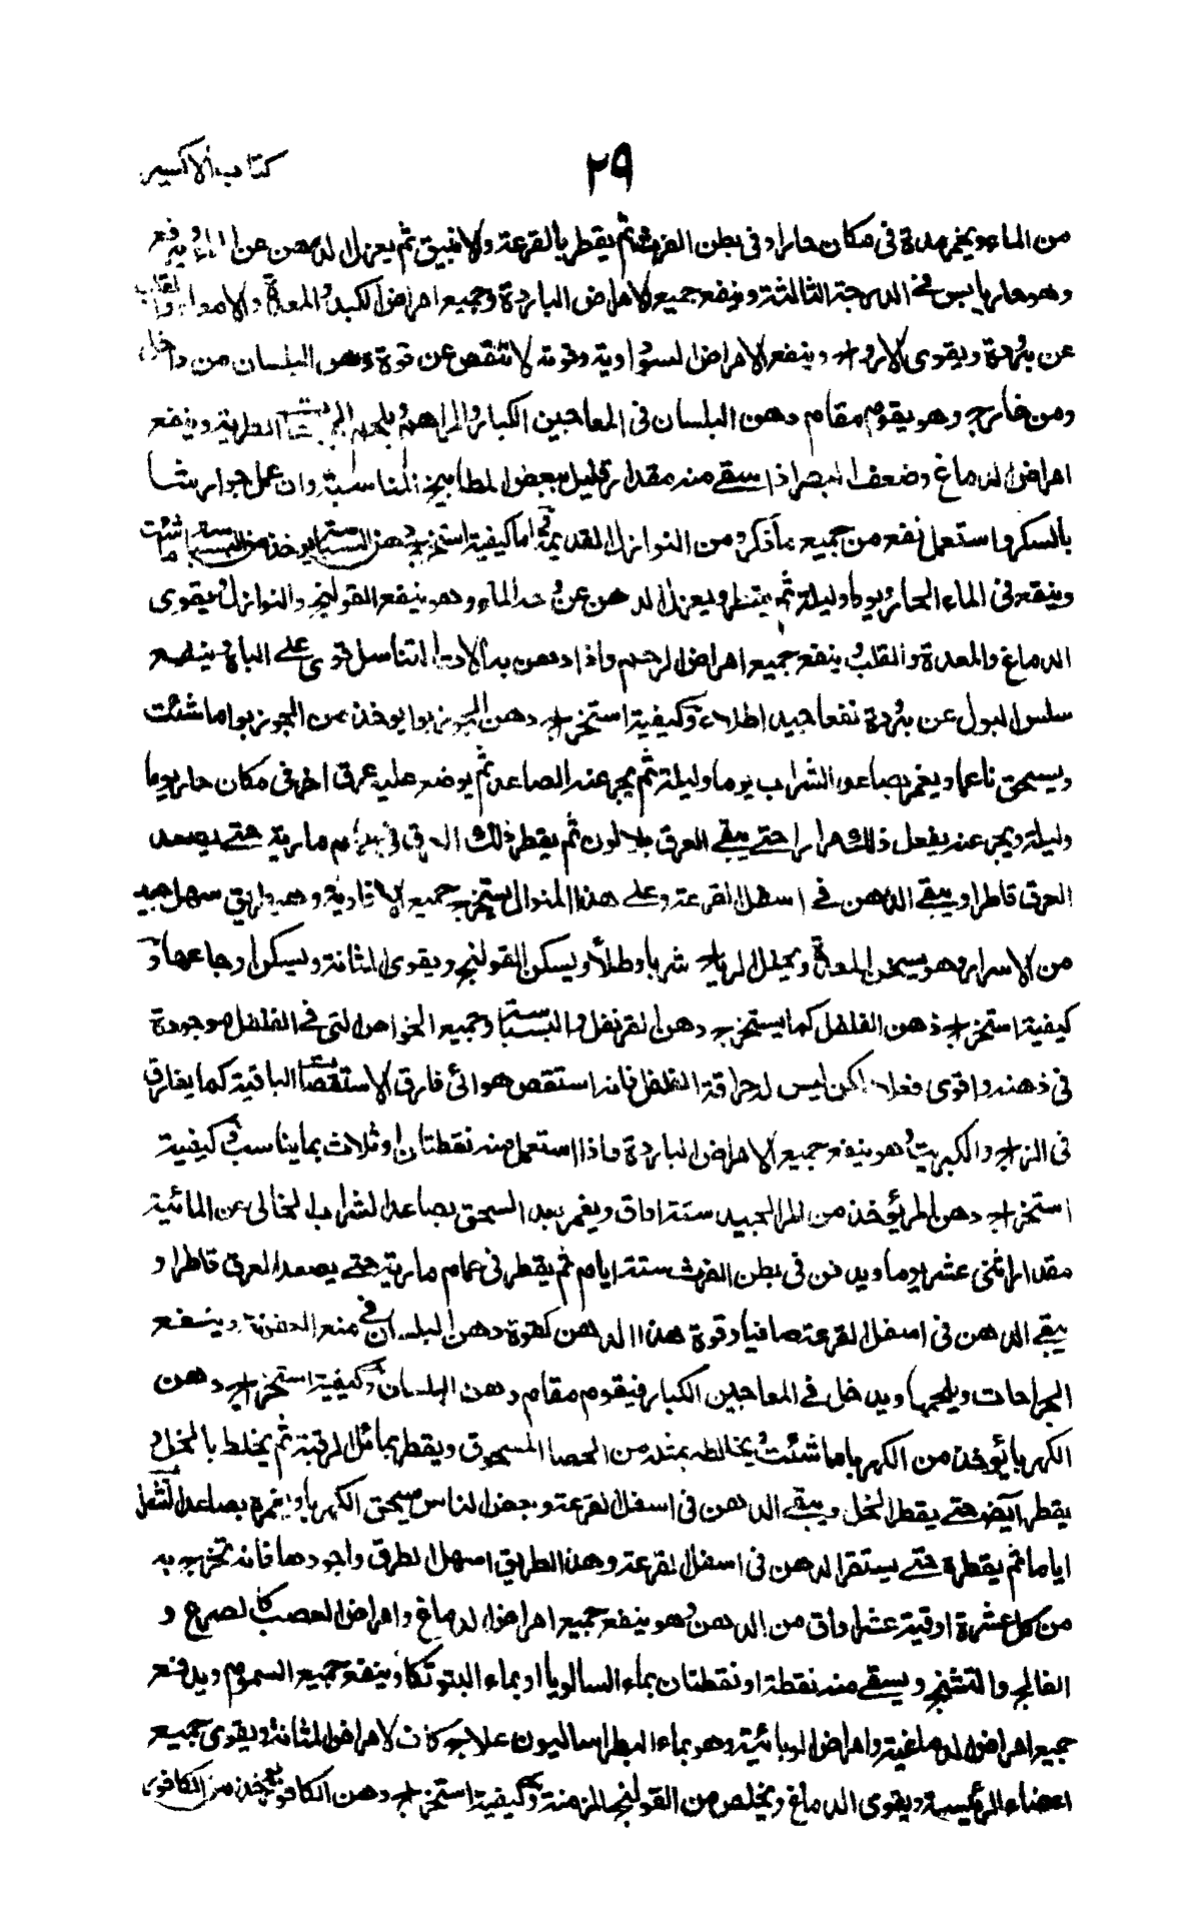 كتاب الاكسير
٢٩
من الماء ويخمر مدة فى مكان حار او فى بطن الفرث ثم يقطر بالقرعة والانبيق ثم يعزل الدهن عن الماء ويرفع
وهو حار يابس فى الدرجة الثالثة وينفع جميع الامراض الباردة وجميع امراض الكبد والمعدة والامعاء والقلب
عن برودة ويقوى الارواح وينفع الامراض السوداوية وقوته لا تنقص عن قوة دهن البلسان من داخل
ومن خارج وهو يقوم مقام دهن البلسان فى المعاجين الكبار والمراهم ويلحم الجراحات الطرية وينفع
امراض الدماغ وضعف البصر اذا سقى منه مقدار قليل ببعض المطابيخ المناسبة وان عمل جوارشا
بالسكر واستعمل نفع من جميع ما ذكر ومن النوازل القديمة اما كيفية استخراج دهن البسباسة يوخذ من البسباسة ما شئت
وينقع فى الماء الحار يوما وليلة ثم يقطر ويعزل الدهن عن حد الماء وهو ينفع القولنج والنوازل ويقوى
الدماغ والمعدة والقلب وينفع جميع امراض الرحم واذا دهن به الات التناسل قوى على الباه وينفع
سلس البول عن برودة نفعا جيدا طلاء وكيفية استخراج دهن الجوزبوا يوخذ من الجوزبوا ما شئت
ويسحق ناعما ويغمر بصاعد الشراب يوما وليلة ثم يجر عنه الصاعد ثم يوضع عليه عرق اخر فى مكان حار يوما
وليلة ويجر عنه يفعل ذلك مرارا حتى يبقى العرق بلا لون ثم يقطر ذلك العرق فى حمام مارية حتى يصعد
العرق قاطرا ويبقى الدهن فى اسفل القرعة وعلى هذا المنوال يستخرج جميع الافاوية وهو طريق سهل جيد
من الاسرار وهو يسخن المعدة ويحلل الرياح شربا وطلأ ويسكن القولنج ويقوى المثانة ويسكن اوجاعها و
كيفية استخراج دهن الفلفل كما يستخرج دهن القرنفل والبسباسة وجميع الخواص التى فى الفلفل موجودة
فى دهنه واقوى فعلا لكن ليس له حراقة الفلفل فانه استقص هوائى فارق الاستقصات الباقية كما يفارق
فى الزاج والكبريت وهو ينفع جميع الامراض الباردة واذا استعمل منه نقطتان او ثلاث بما يناسب وكيفية
استخراج دهن المر يؤخذ من المر الجيد ستة اواق ويغمر بعد السحق بصاعد الشراب الخالى عن المائية
مقدار اثنى عشر يوما ويدفن فى بطن الفرث ستة ايام ثم يقطر فى حمام مارية حتى يصعد العرق قاطرا و
يبقى الدهن فى اسفل القرعة صافيا وقوة هذا الدهن كقوة دهن البلسان فى منع العفونة وينفع
الجراحات ويلحمها ويدخل فى المعاجين الكبار فيقوم مقام دهن البلسان وكيفية استخراج دهن
الكهربا يؤخذ من الكهربا ما شئت ويخالطه بمثله من الحصا المسحوق ويقطر بمائل الرقبة ثم يخلط بالخل و
يقطر ايضا حتى يقطر الخل ويبقى الدهن فى اسفل القرعة وبعض الناس يسحق الكهربا ويغمره بصاعد الشراب
اياما ثم يقطره حتى يستقر الدهن فى اسفل القرعة وهذا الطريق اسهل الطرق واجودها فانه تخرج به
من كل عشرة اوقية عشر اواق من الدهن وهو ينفع جميع امراض الدماغ وامراض العصب كالصرع و
الفالج والتشنج ويسقى منه نقطة او نقطتان بماء السالويا او بماء البتوتكا وينفع جميع السموم ويدفع
جميع امراض الدماغية وامراض الوبائية وهو بماء البطراساليون علاج كاف لامراض المثانة ويقوى جميع
اعضاء الرئيسية ويقوى الدماغ ويخلص من القولنج المزمنة وكيفية استخراج دهن الكافور يؤخذ من الكافور